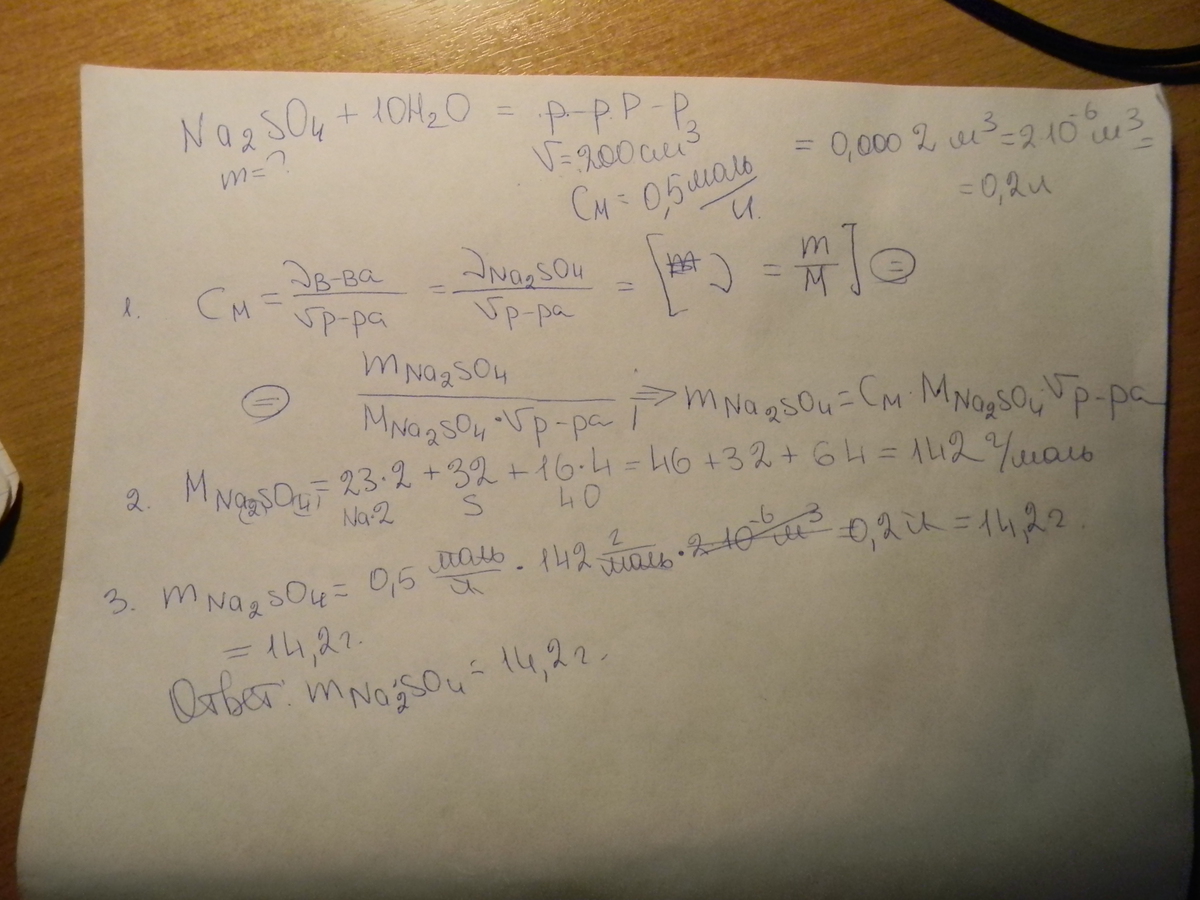 Na₂SO₄ + 10H₂O = р-р Р-Р = 0,0002 м³ = 2·10⁻⁶ м³ =
m = ? V = 200 см³ = 0,2 л
Cм = 0,5 моль/л.
1. Cм = νв-ва/Vр-ра = νNa₂SO₄/Vр-ра = [ν = m/M] =
= mNa₂SO₄/(MNa₂SO₄·Vр-ра) ⇒ mNa₂SO₄ = Cм·MNa₂SO₄·Vр-ра
2. MNa₂SO₄ = 23·2 + 32 + 16·4 = 46 + 32 + 64 = 142 г/моль
Na·2 S 4O
3. mNa₂SO₄ = 0,5 моль/л · 142 г/моль · 2·10⁻⁶ м³ 0,2 л = 14,2 г.
= 14,2 г.
Ответ: mNa₂SO₄ = 14,2 г.